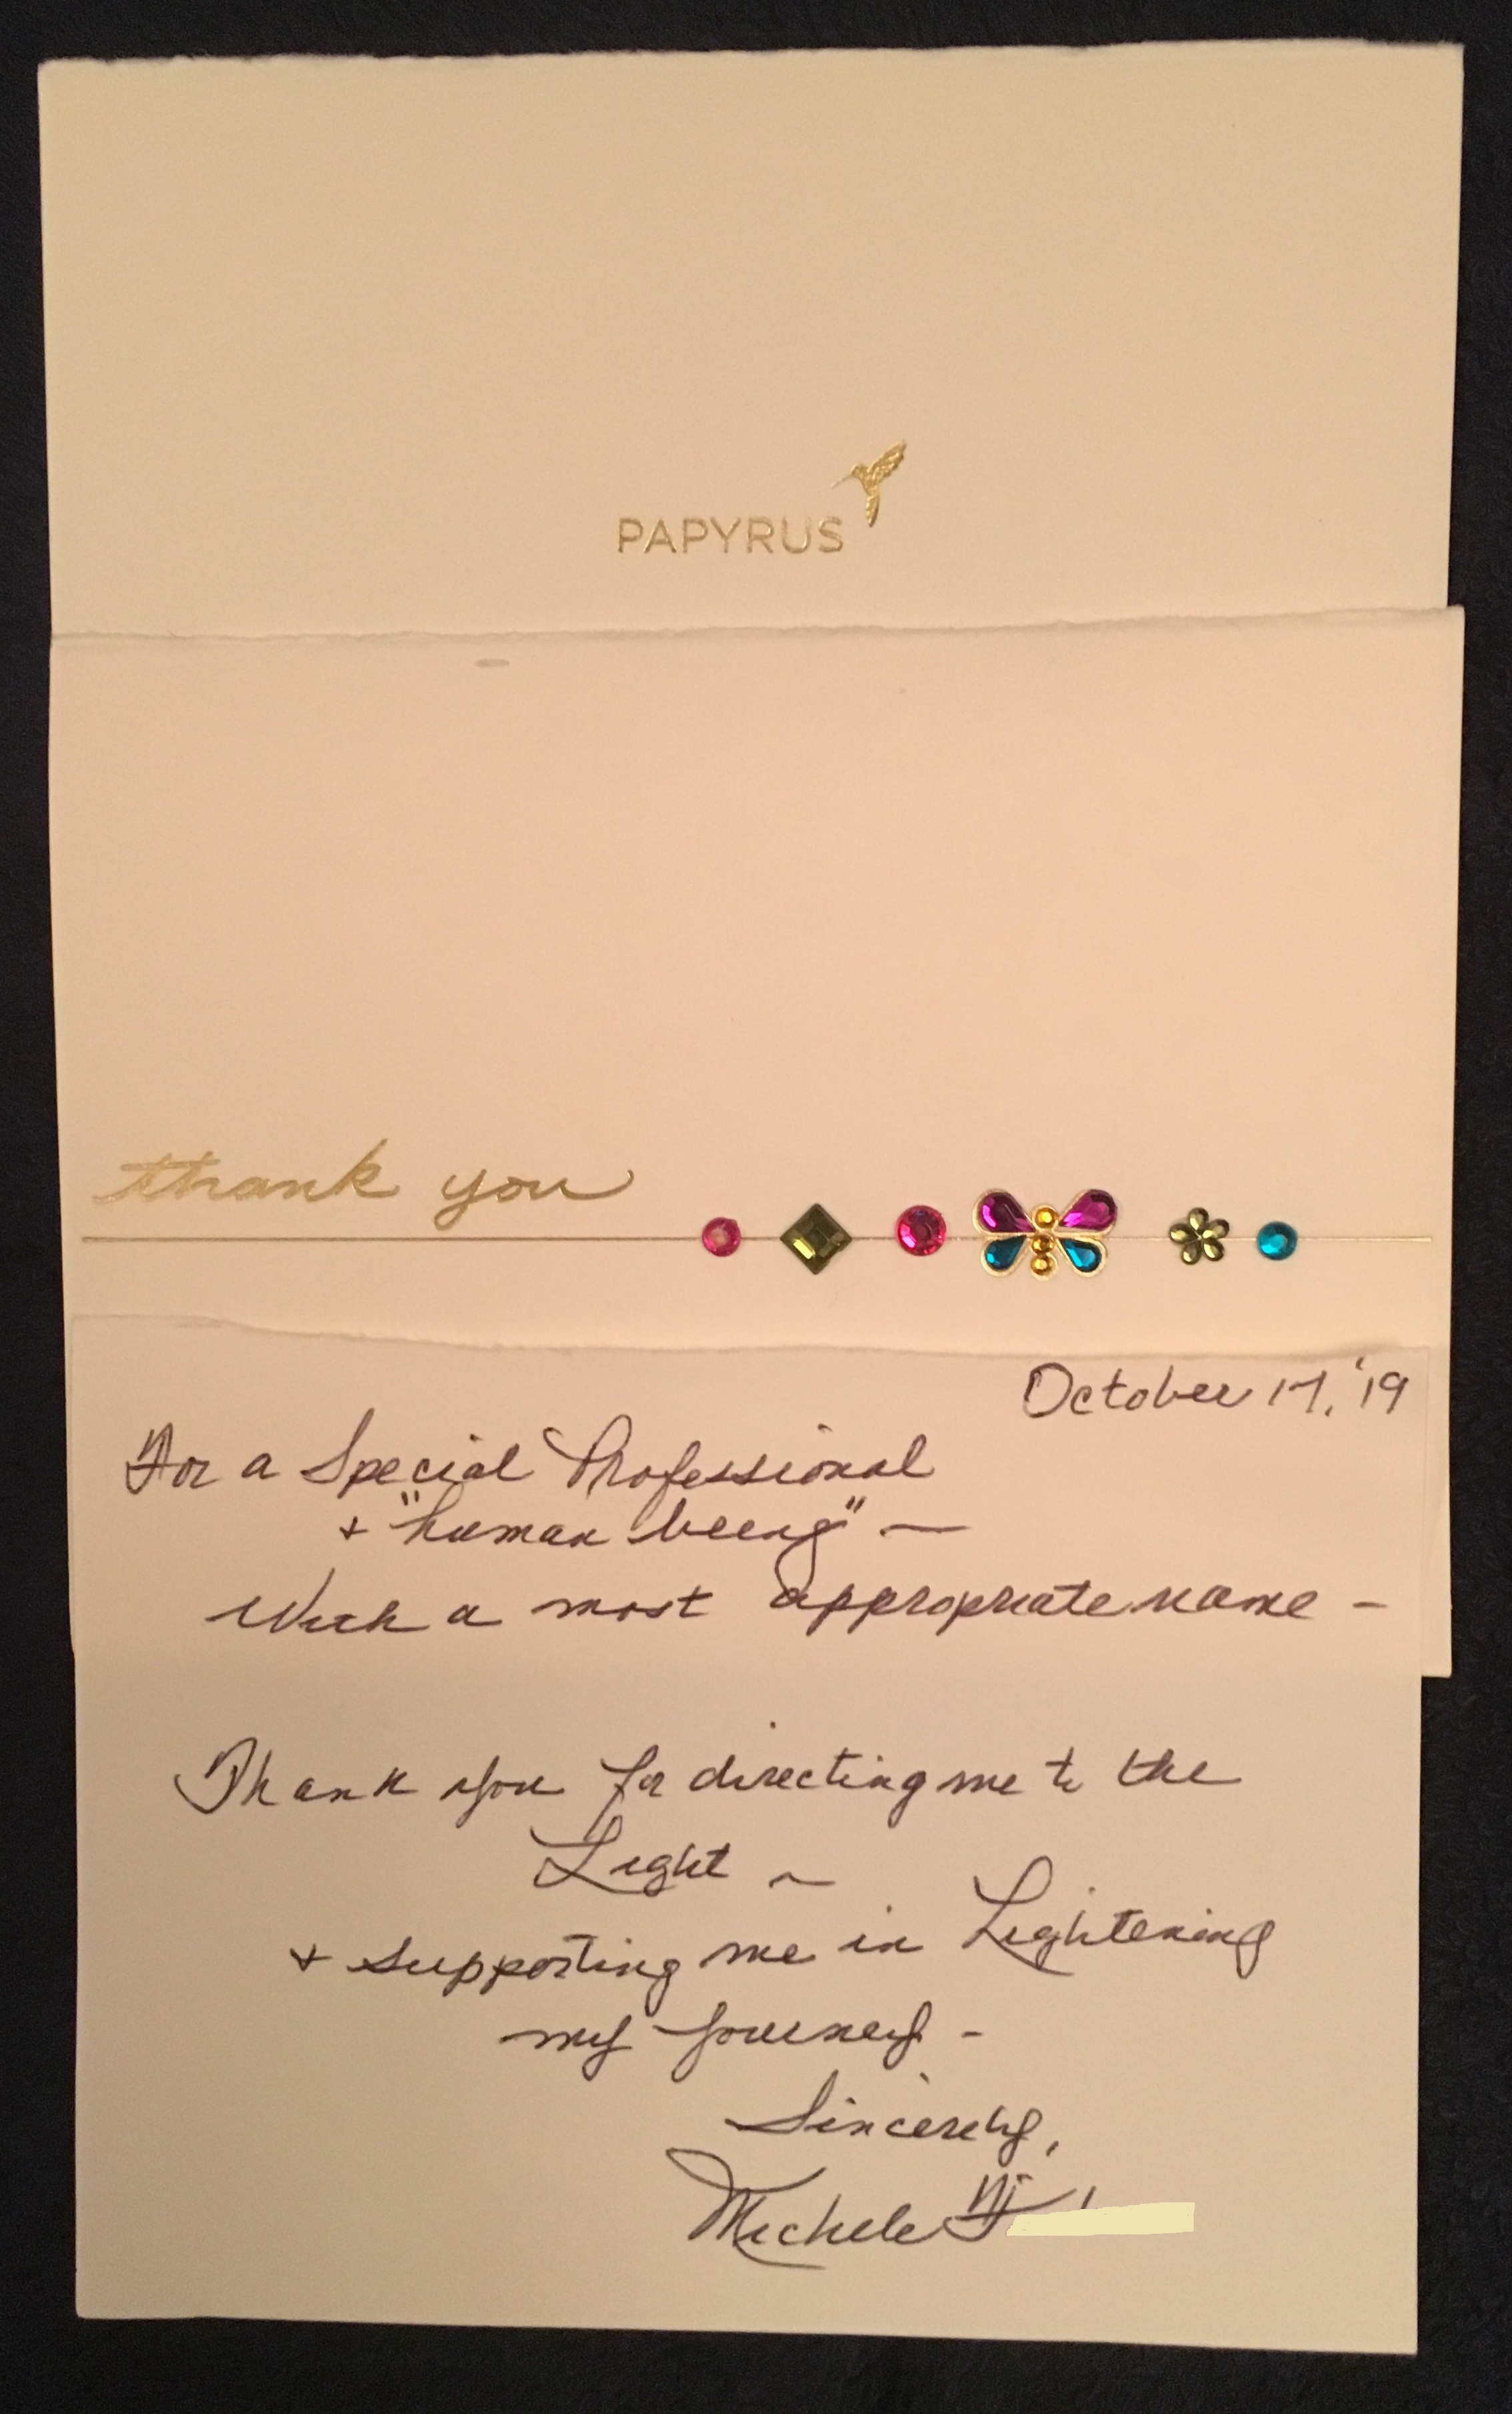 PAPYRUS
thank you
October 17, '19
For a Special Professional
+ "human being" —
With a most appropriate name -
Thank you for directing me to the
Light ~
+ supporting me in Lightening
my journey -
Sincerely,
Michele